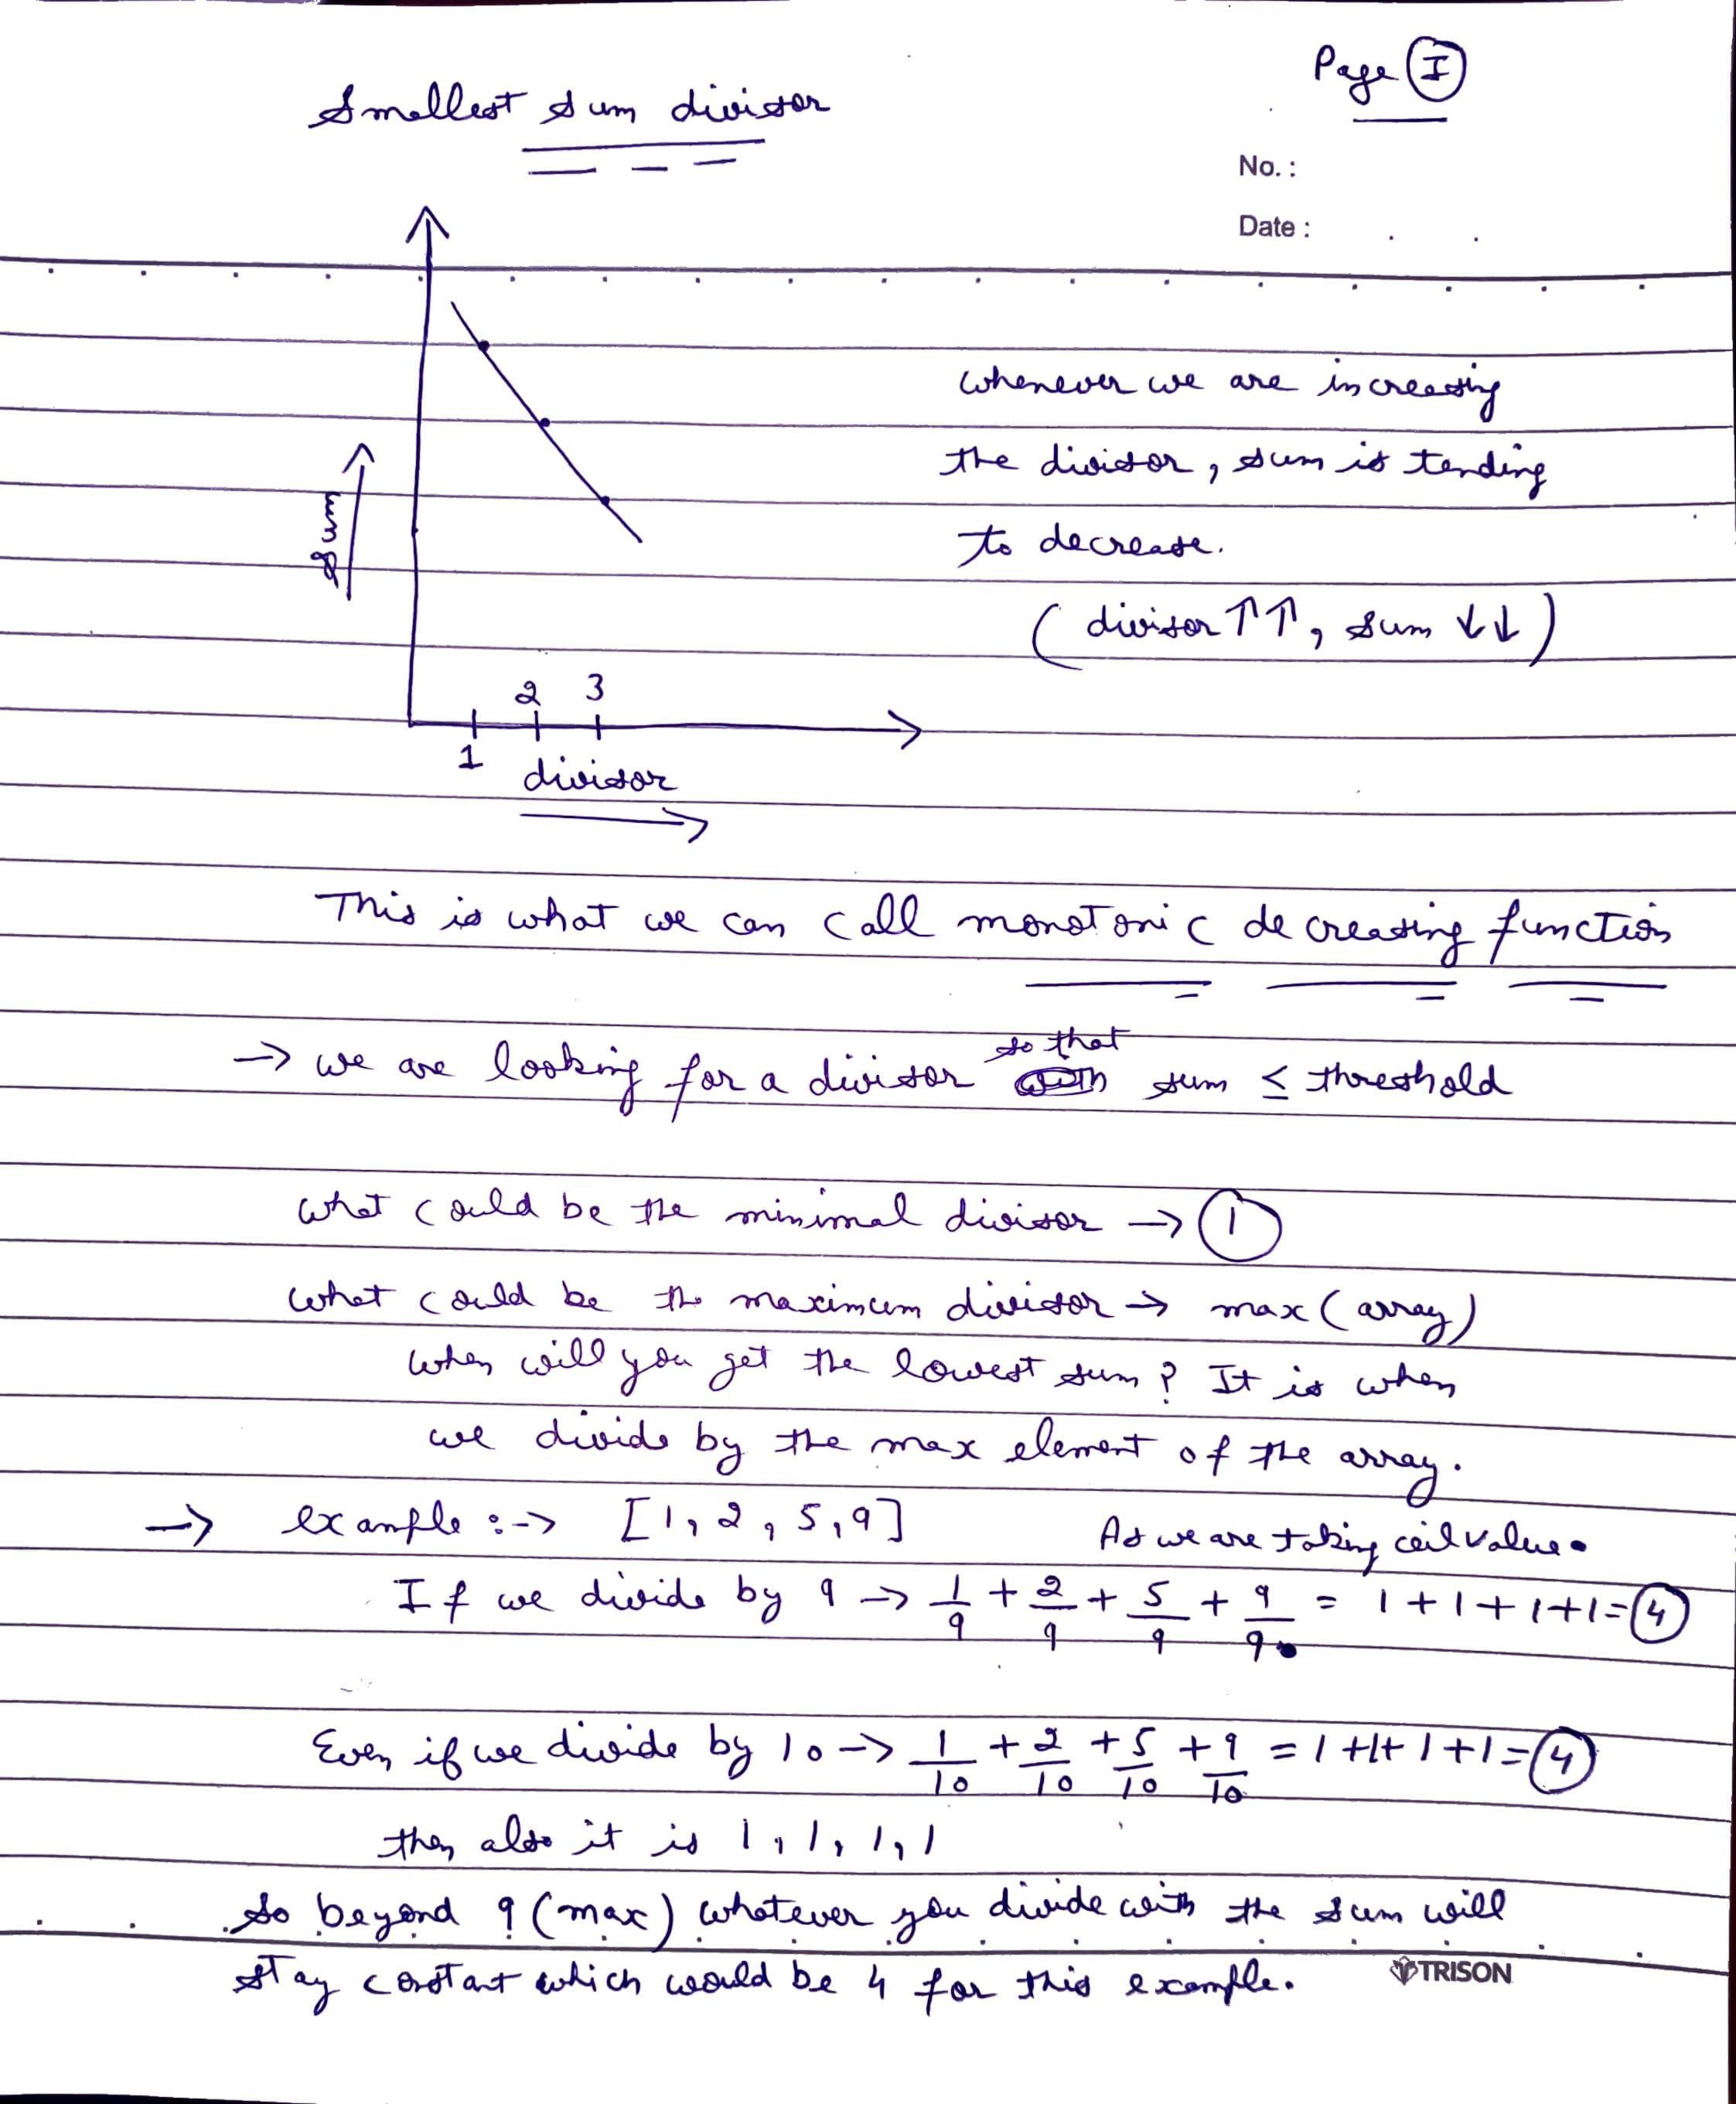 Page I
Smallest sum divisor
No. :
Date :
whenever we are increasing
the divisor, sum is tending
to decrease.
(divisor ↑↑, sum ↓↓)
sum
2 3
1
divisor
This is what we can call monotonic decreasing function
so that
→ we are looking for a divisor sum ≤ threshold
what could be the minimal divisor → 1
what could be the maximum divisor → max (array)
when will you get the lowest sum? It is when
we divide by the max element of the array.
→ example :-> [1, 2, 5, 9] As we are taking ceil value.
If we divide by 9 → 1/9 + 2/9 + 5/9 + 9/9 = 1 + 1 + 1 + 1 = 4
Even if we divide by 10 → 1/10 + 2/10 + 5/10 + 9/10 = 1 + 1 + 1 + 1 = 4
then also it is 1, 1, 1, 1
So beyond 9 (max) whatever you divide with the sum will
stay constant which would be 4 for this example.
TRISON